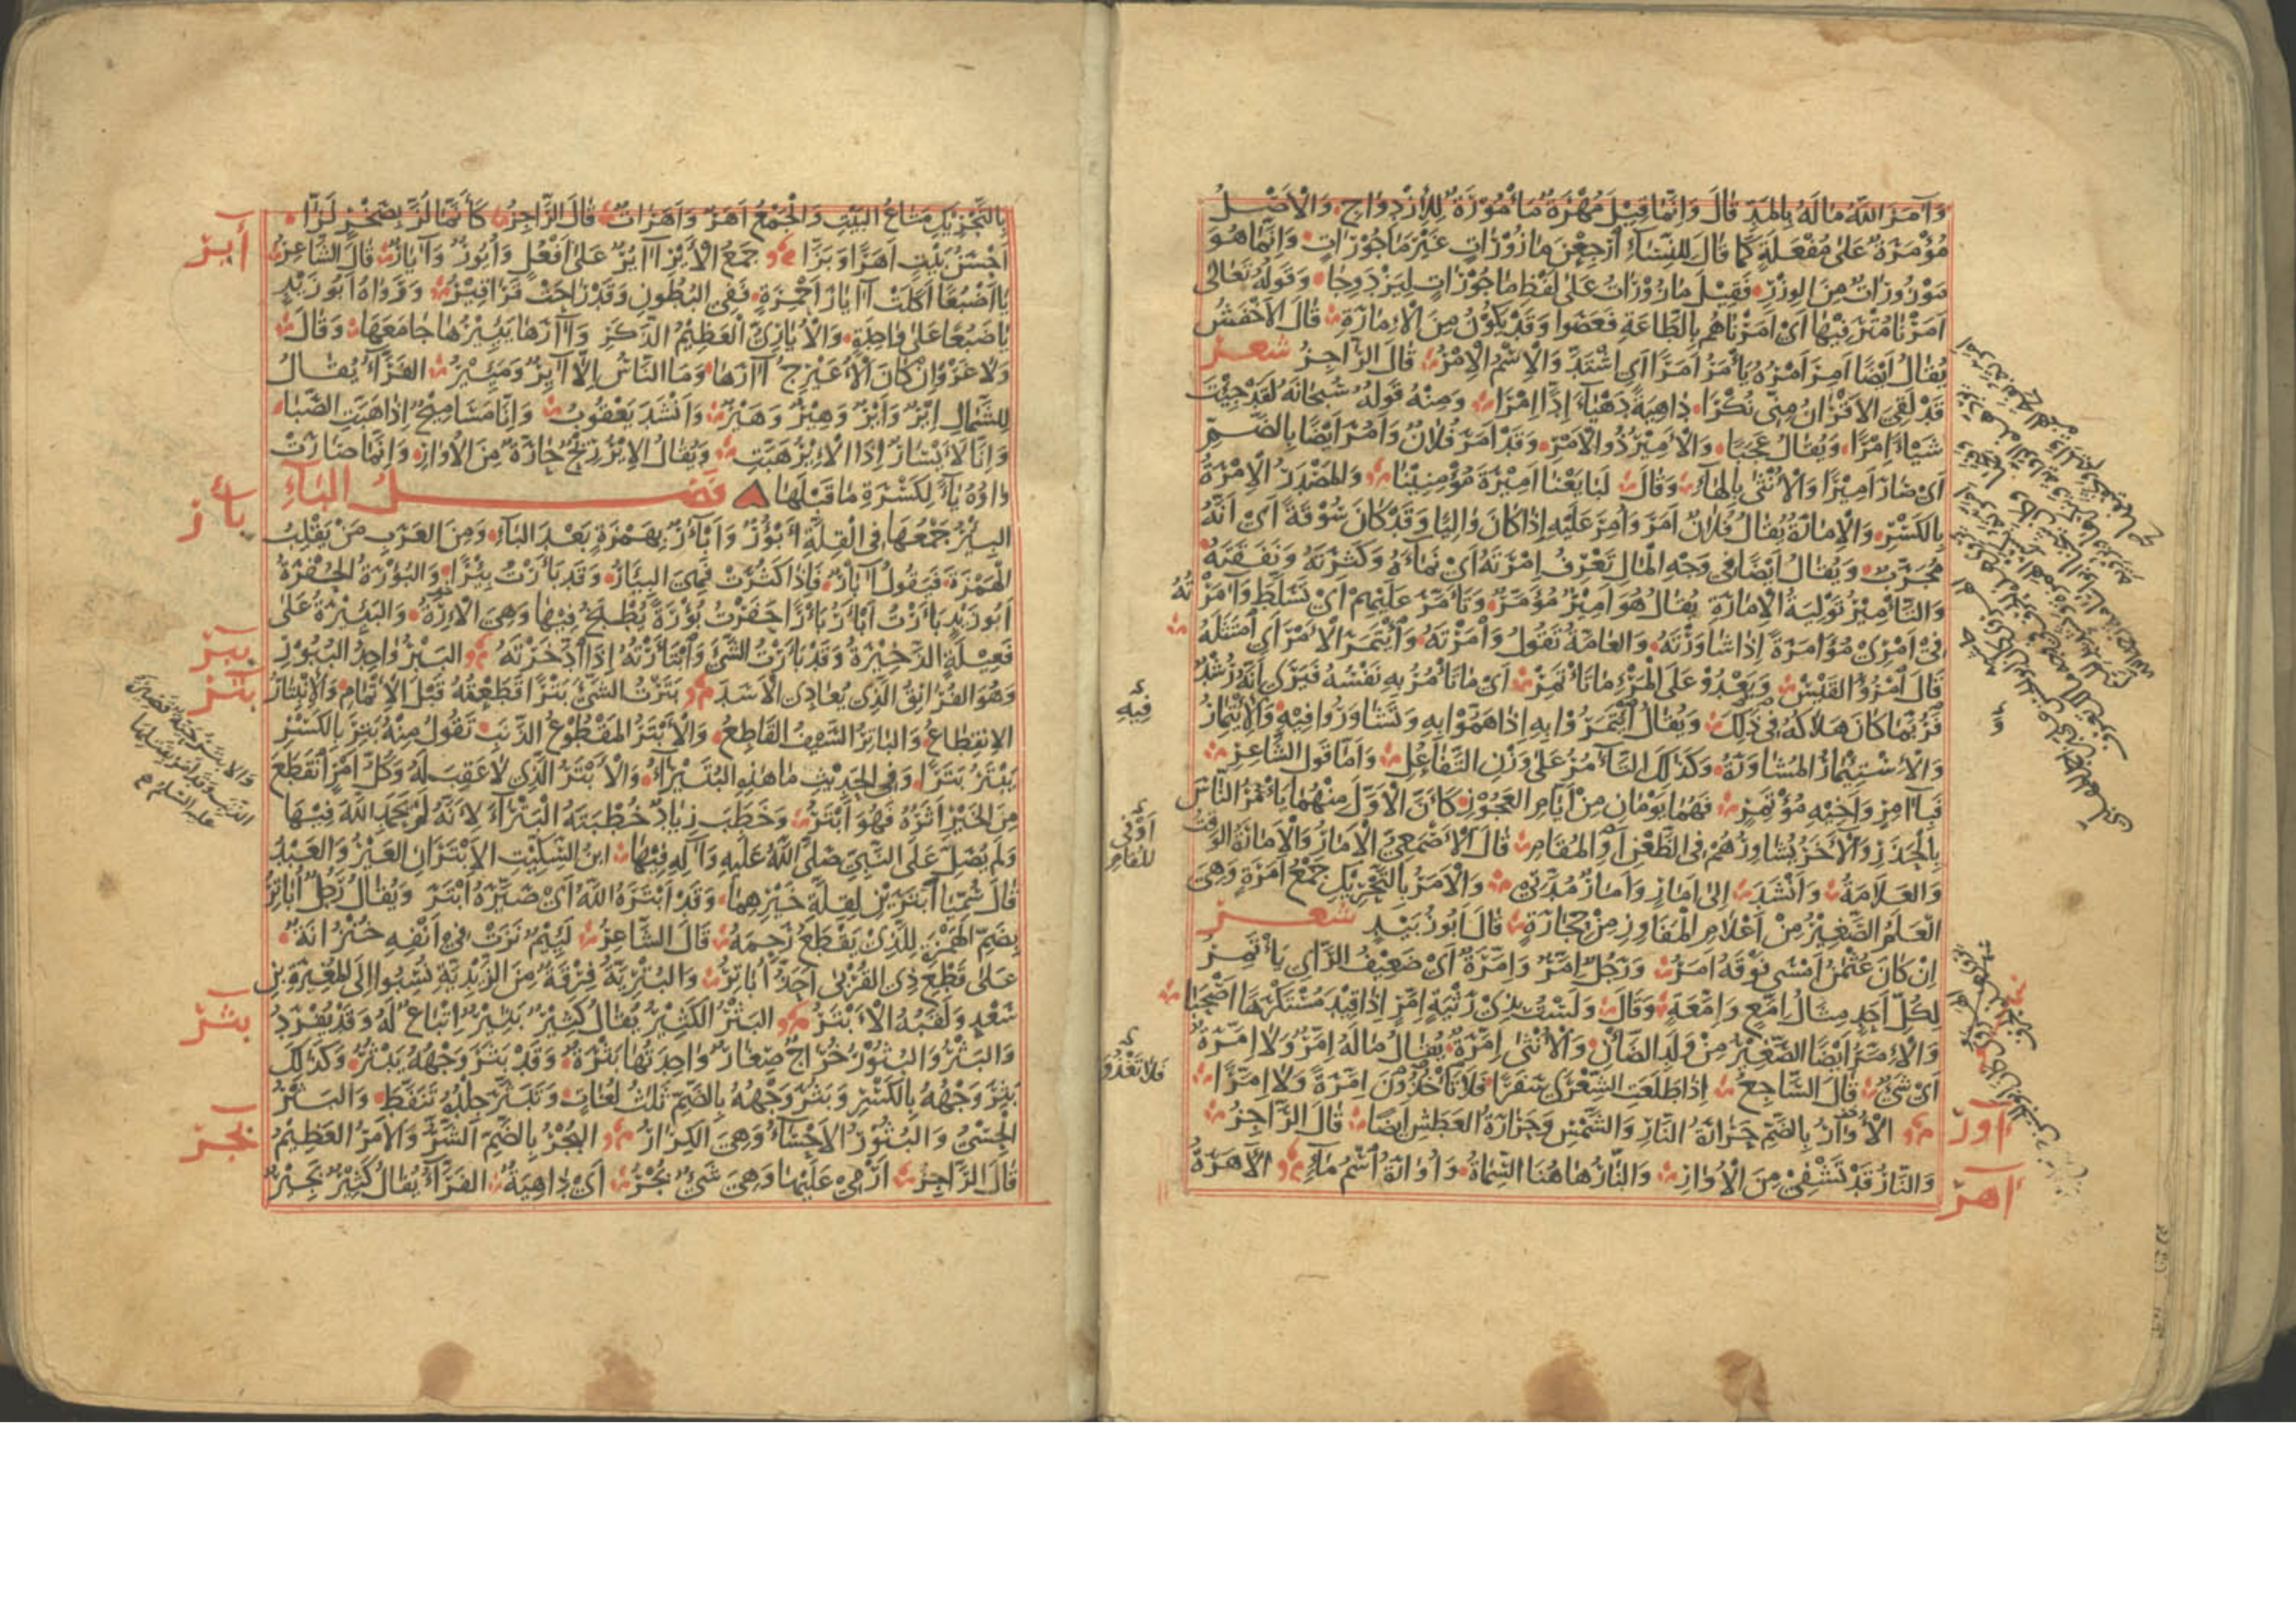 وَآمَرَ اللّٰهُ مَالَهُ بِالمَدِّ قَالَ وَاِنَّمَا قِيْلَ مُهْرَةٌ مَأْمُوْرَةٌ لِلْاِزْدِوَاجِ وَالْاَصْلُ
مُؤْمَرَةٌ عَلىٰ مُفْعَلَةٍ كَمَا قَالَ لِلنِّسَاءِ اَرْجِعْنَ مَازُوْرَاتٍ غَيْرَ مَاجُوْرَاتٍ وَاِنَّمَا هُوَ
مَوْزُوْرَاتٌ مِنَ الوِزْرِ فَقِيْلَ مَازُوْرَاتٌ عَلىٰ لَفْظِ مَاجُوْرَاتٍ لِيَزْدَوِجَا وَقَوْلُهُ تَعَالىٰ
اَمَرْنَا مُتْرَفِيْهَا اَيْ اَمَرْنَاهُمْ بِالطَّاعَةِ فَعَصَوْا وَقَدْ يَكُوْنُ مِنَ الْاِمَارَةِ قَالَ الْاَخْفَشُ
يُقَالُ اَيْضًا اَمِرَ اَمْرُهُ يَأْمَرُ اَمَرًا اَيْ اشْتَدَّ وَالْاِسْمُ الْاِمْرُ قَالَ الرَّاجِزُ شعر
قَدْ لَقِيَ الْاَقْرَانُ مِنِّى نُكْرَا دَاهِيَةً دَهْيَاءَ اِدًّا اِمْرَا وَمِنْهُ قَوْلُهُ سُبْحَانَهُ لَقَدْ جِئْتَ
شَيْئًا اِمْرًا وَيُقَالُ عَجَبًا وَالْاَمِيْرُ ذُو الْاَمْرِ وَقَدْ اَمَرَ فُلَانٌ وَاَمُرَ اَيْضًا بِالضَّمِّ
اَيْ صَارَ اَمِيْرًا وَالْاُنْثىٰ بِالهَاءِ وَقَالَ لَبَايَعْنَا اَمِيْرَةَ مُؤْمِنِيْنَا وَالمَصْدَرُ الْاِمْرَةُ
بِالكَسْرِ وَالْاِمَارَةُ يُقَالُ فُلَانٌ اَمَرَ وَاُمِرَ عَلَيْهِ اِذَا كَانَ وَالِيًا وَقَدْ كَانَ سُوْقَةً اَيْ اَنَّهُ
مُجَرَّبٌ وَيُقَالُ اَيْضًا فِي وَجْهِ الْمَالِ تَعْرِفُ اَمْرَتَهُ اَيْ نَمَاءَهُ وَكَثْرَتَهُ وَنَفَقَتَهُ
وَالتَّأْمِيْرُ تَوْلِيَةُ الْاِمَارَةِ يُقَالُ هُوَ اَمِيْرٌ مُؤَمَّرٌ وَتَاَمَّرَ عَلَيْهِمْ اَيْ تَسَلَّطَ وَآمَرْتُهُ
فِيْ اَمْرِيْ مُؤَامَرَةً اِذَا شَاوَرْتَهُ وَالعَامَّةُ تَقُوْلُ وَامَرْتَهُ وَائْتَمَرَ الْاَمْرَ اَيِ امْتَثَلَهُ
قَالَ امْرُؤُ القَيْسِ وَيَعْدُوْ عَلَى الْمَرْءِ مَا تَأْتَمِرْ اَيْ مَا تَأْمُرُ بِهِ نَفْسُهُ فَيَرَى اَنَّهُ رُشْدٌ
فَرُبَّمَا كَانَ هَلَاكُهُ فِي ذٰلِكَ وَيُقَالُ ائْتَمَرُوْا بِهِ اِذَا هَمُّوْا بِهِ وَتَشَاوَرُوْا فِيْهِ وَالْاِئْتِمَارُ
وَالْاِسْتِيْمَارُ المُشَاوَرَةُ وَكَذٰلِكَ التَّآمُرُ عَلىٰ وَزْنِ التَّفَاعُلِ وَاَمَّا قَوْلُ الشَّاعِرِ
فَبِآمِرٍ وَاَخِيْهِ مُؤْتَمِرٍ فَهُمَا يَوْمَانِ مِنْ اَيَّامِ العَجُوْزِ كَاَنَّ الْاَوَّلَ مِنْهُمَا يَأْمُرُ النَّاسَ
بِالْحَذَرِ وَالْآخَرَ يُشَاوِرُهُمْ فِي الظَّعْنِ اَوِ المُقَامِ قَالَ الْاَصْمَعِيُّ الْاَمَارُ وَالْاَمَارَةُ الوَقْتُ
وَالعَلَامَةُ وَاَنْشَدَ اِلىٰ اَمَارٍ وَاَمَارُ مُدَّتِيْ وَالْاَمَرُ بِالتَّحْرِيْكِ جَمْعُ اَمَرَةٍ وَهِيَ
العَلَمُ الصَّغِيْرُ مِنْ اَعْلَامِ الْمَفَاوِزِ مِنْ حِجَارَةٍ قَالَ اَبُوْ زُبَيْدٍ شعر
اِنْ كَانَ عُثْمٰنُ اَمْسٰى فَوْقَهُ اَمَرٌ وَرَجُلٌ اِمَّرٌ وَاِمَّرَةٌ اَيْ ضَعِيْفُ الرَّأْيِ يَأْتَمِرُ
لِكُلِّ اَحَدٍ مِثَالُ اِمَّعٍ وَاِمَّعَةٍ وَقَالَ وَلَسْتُ بِذِيْ رَثْيَةٍ اِمَّرٍ اِذَا قِيْدَ مُسْتَكْرَهًا اَصْحَبَا
وَالْاِمَّرُ اَيْضًا الصَّغِيْرُ مِنْ وَلَدِ الضَّأْنِ وَالْاُنْثىٰ اِمَّرَةٌ يُقَالُ مَالَهُ اِمَّرٌ وَلَا اِمَّرَةٌ
اَيْ شَيْءٌ قَالَ السَّاجِعُ اِذَا طَلَعَتِ الشِّعْرىٰ سَفَرًا فَلَا اِمَّرَةً وَلَا اِمَّرًا
آور الْاُوَارُ بِالضَّمِّ حَرَارَةُ النَّارِ وَالشَّمْسِ وَحَرَارَةُ العَطَشِ اَيْضًا قَالَ الرَّاجِزُ
اهر وَالنَّارُ قَدْ تَشْفِيْ مِنَ الْاُوَارِ وَالنَّارُ هَاهُنَا السِّمَاتُ وَاُوَارَةُ اسْمُ مَاءٍ الْاَهَرَةُ
فِيْهِ
بِالتَّحْرِيْكِ مَتَاعُ البَيْتِ وَالْجَمْعُ اَهَرٌ وَاَهَرَاتٌ قَالَ الرَّاجِزُ كَاَنَّمَا لُزَّ بِصَخْرٍ لَزَّا
أير اَحْسَنُ بَيْتٍ اَهَرًا وَبَزَّا جَمْعُ الْاَيْرِ اٰايُرٌ عَلىٰ اَفْعُلٍ وَاُيُوْرٌ وَآيَارٌ قَالَ الشَّاعِرُ
يَا اَضْبُعًا اَكَلَتْ اٰايَارَ اَحْمِرَةٍ فَفِي البُطُوْنِ وَقَدْ رَاحَتْ قَرَاقِيْرُ وَرَوَاهُ اَبُوْ زَيْدٍ
يَا ضَبُعًا عَلىٰ وَاحِدَةٍ وَالْاُيَارِيُّ الْعَظِيْمُ الذَّكَرِ وَاٰارَهَا يَئِيْرُهَا جَامَعَهَا وَقَالَ
وَلَا غَرْوَ اِنْ كَانَ الْاُعَيْرِجُ اٰارَهَا وَمَا النَّاسُ اِلَّا اٰايِرٌ وَمَئِيْرُ الفَرَّاءُ يُقَالُ
لِلشَّمَالِ اِيْرٌ وَاَيْرٌ وَهِيْرٌ وَهَيْرٌ وَاَنْشَدَ يَعْقُوْبُ وَاِنَّا مَسَامِيْحٌ اِذَا هَبَّتِ الصَّبَا
وَاِنَّا لَاَيْسَارٌ اِذَا الْاِيْرُ هَبَّتِ وَيُقَالُ الْاِيْرُ رِيْحٌ حَارَّةٌ مِنَ الْاُوَارِ وَاِنَّمَا صَارَتْ
بأر وَاوُهُ يَاءً لِكَسْرَةِ مَا قَبْلَهَا فصل الباء
البِئْرُ جَمْعُهَا فِي القِلَّةِ اَبْؤُرٌ وَاَبْآرٌ بِهَمْزَةٍ بَعْدَ البَاءِ وَمِنَ العَرَبِ مَنْ يَقْلِبُ
الْهَمْزَةَ فَيَقُوْلُ آبَارٌ فَاِذَا كَثُرَتْ فَهِيَ البِئَارُ وَقَدْ بَأَرْتُ بِئْرًا وَالبُؤْرَةُ الحُفْرَةُ
اَبُوْ زَيْدٍ بَأَرْتُ اَبْأَرُ بَأْرًا حَفَرْتُ بُؤْرَةً يُطْبَخُ فِيْهَا وَهِيَ الْاِرَةُ وَالبَئِيْرَةُ عَلىٰ
ببر فَعِيْلَةٍ الذَّخِيْرَةُ وَقَدْ بَأَرْتُ الشَّيْءَ وَابْتَأَرْتُهُ اِذَا ادَّخَرْتَهُ البَبْرُ وَاحِدُ البُبُوْرِ
بتر وَهُوَ الفُرَانِقُ الَّذِي يُعَادِي الْاَسَدَ بَتَرْتُ الشَّيْءَ بَتْرًا قَطَعْتُهُ قَبْلَ الْاِتْمَامِ وَالْاِنْبِتَارُ
الْاِنْقِطَاعُ وَالبَاتِرُ السَّيْفُ القَاطِعُ وَالْاَبْتَرُ المَقْطُوْعُ الذَّنَبِ تَقُوْلُ مِنْهُ بَتِرَ بِالكَسْرِ
يَبْتَرُ بَتَرًا وَفِي الحَدِيْثِ مَا هٰذِهِ البُتَيْرَاءُ وَالْاَبْتَرُ الَّذِي لَا عَقِبَ لَهُ وَكُلُّ اَمْرٍ انْقَطَعَ
مِنَ الخَيْرِ اَثَرُهُ فَهُوَ اَبْتَرُ وَخَطَبَ زِيَادٌ خُطْبَتَهُ الْبَتْرَاءَ لِاَنَّهُ لَمْ يَحْمَدِ اللّٰهَ فِيْهَا
وَلَمْ يُصَلِّ عَلَى النَّبِيِّ صَلَّى اللّٰهُ عَلَيْهِ وَآلِهِ فِيْهَا ابْنُ السِّكِّيْتِ الْاَبْتَرَانِ العَيْرُ وَالعَبْدُ
قَالَ سُمِّيَا اَبْتَرَيْنِ لِقِلَّةِ خَيْرِهِمَا وَقَدْ اَبْتَرَهُ اللّٰهُ اَيْ صَيَّرَهُ اَبْتَرَ وَيُقَالُ رَجُلٌ اُبَاتِرٌ
بِضَمِّ الهَمْزَةِ لِلَّذِيْ يَقْطَعُ رَحِمَهُ قَالَ الشَّاعِرُ لَئِيْمٌ نَزَتْ فِي اَنْفِهِ خُنْزُوَانَةٌ
عَلىٰ قَطْعِ ذِي القُرْبىٰ اَحَذُّ اُبَاتِرُ وَالبُتْرِيَّةُ فِرْقَةٌ مِنَ الزَّيْدِيَّةِ نُسِبُوا اِلَى المُغِيْرَةِ بْنِ
بثر سَعْدٍ وَلَقَبُهُ الْاَبْتَرُ البَثْرُ الكَثِيْرُ يُقَالُ كَثِيْرٌ بَثِيْرٌ اِتْبَاعٌ لَهُ وَقَدْ يُفْرَدُ
وَالبَثْرُ وَالبُثُوْرُ خُرَاجٌ صِغَارٌ وَاحِدَتُهَا بَثْرَةٌ وَقَدْ بَثَرَ وَجْهُهُ يَبْثُرُ وَكَذٰلِكَ
بَثِرَ وَجْهُهُ بِالكَسْرِ وَبَثُرَ وَجْهُهُ بِالضَّمِّ ثَلٰثُ لُغَاتٍ وَتَبَثَّرَ جِلْدُهُ تَنَفَّطَ وَالبَثْرُ
بجر الحِسْيُ وَالبُثُوْرُ الْاَحْسَاءُ وَهِيَ الكِرَارُ البُجْرُ بِالضَّمِّ الشَّرُّ وَالْاَمْرُ العَظِيْمُ
قَالَ الرَّاجِزُ اَرْمِيْ عَلَيْهَا وَهِيَ شَيْءٌ بُجْرُ اَيْ دَاهِيَةٌ الفَرَّاءُ يُقَالُ كَثِيْرٌ بَجِيْرٌ